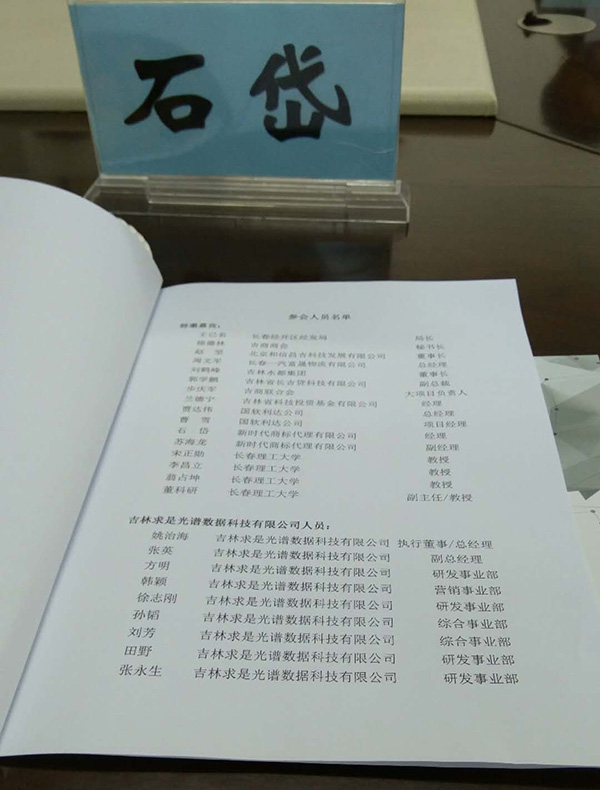 石岱
参会人员名单
长春经开区经发局 局长
吉商商会 秘书长
赵 北京和信昌吉科技发展有限公司 董事长
周文军 长春一汽富晟物流有限公司 总经理
刘鹤峰 吉林永都集团 董事长
郭学鹏 吉林省长吉贷科技有限公司 副总裁
步庆军 吉商联合会 大项目负责人
兰德宁 吉林省科技投资基金有限公司 经理
贾达伟 国软利达公司 总经理
曹 雪 国软利达公司 项目经理
石 岱 新时代商标代理有限公司 经理
苏海龙 新时代商标代理有限公司 副经理
宋正勋 长春理工大学 教授
李昌立 长春理工大学 教授
翁占坤 长春理工大学 教授
董科研 长春理工大学 副主任/教授
吉林求是光谱数据科技有限公司人员：
姚治海 吉林求是光谱数据科技有限公司 执行董事/总经理
张英 吉林求是光谱数据科技有限公司 副总经理
方明 吉林求是光谱数据科技有限公司 研发事业部
韩颖 吉林求是光谱数据科技有限公司 营销事业部
徐志刚 吉林求是光谱数据科技有限公司 研发事业部
孙韬 吉林求是光谱数据科技有限公司 综合事业部
刘芳 吉林求是光谱数据科技有限公司 综合事业部
田野 吉林求是光谱数据科技有限公司 研发事业部
张永生 吉林求是光谱数据科技有限公司 研发事业部